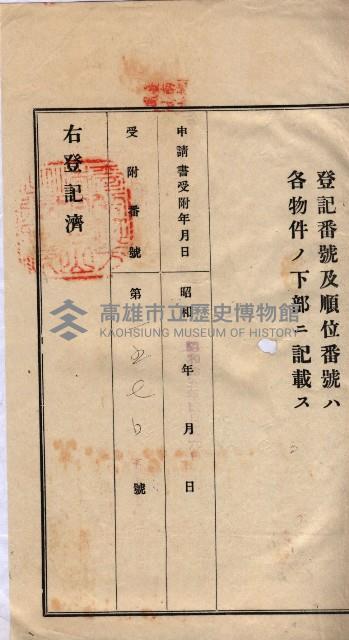 登記番號及順位番號ハ
各物件ノ下部ニ記載ス
申請書受附年月日
昭和 年 月 日
受附番號
第 號
右登記濟
高雄市立歷史博物館
KAOHSIUNG MUSEUM OF HISTORY